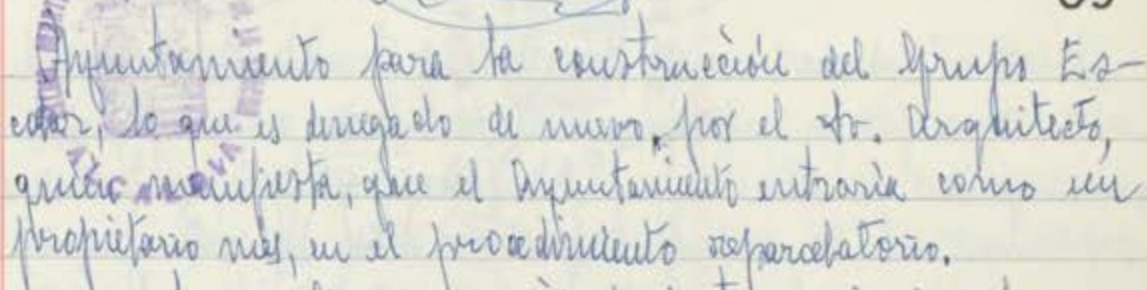 Ayuntamiento para la construcción del Grupo Es-
colar, lo que es denegado de nuevo, por el Sr. Arquitecto,
quien manifiesta, que el Ayuntamiento entraría como un
propietario más, en el procedimiento reparcelatorio.